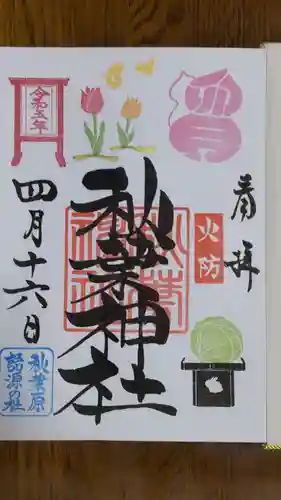 奉拝
火防
四月
秋葉神社
秋葉神社
令和五年
四月十六日
秋葉原
語源の社